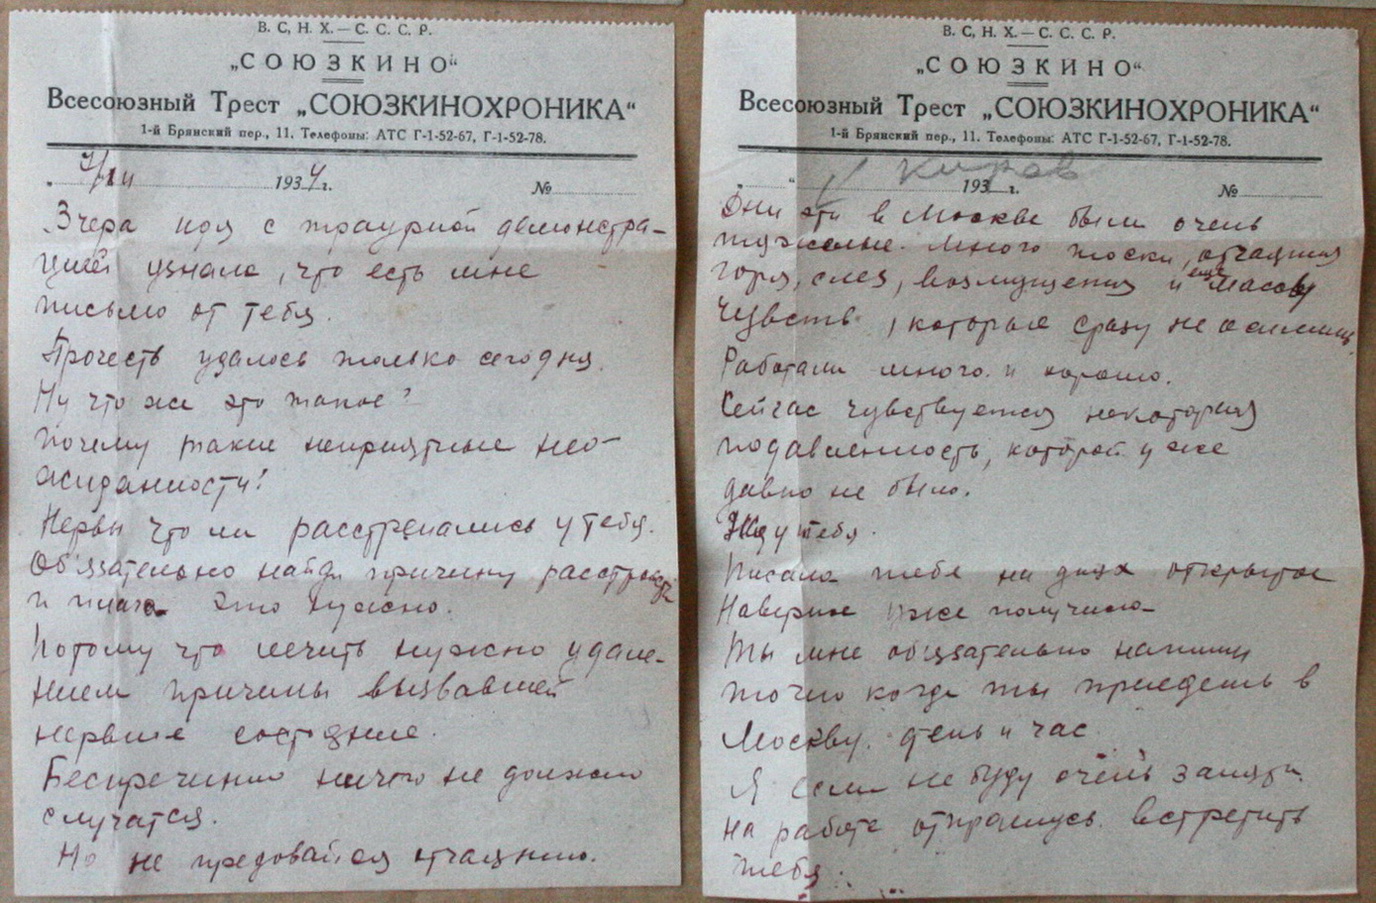 В. С, Н. Х. — С. С. С. Р.
„СОЮЗКИНО“
Всесоюзный Трест „СОЮЗКИНОХРОНИКА“
1-й Брянский пер., 11. Телефоны: АТС Г-1-52-67, Г-1-52-78.
1934 г. №
Вчера идя с траурной демонстра-
цией узнала, что есть мне
письмо от тебя.
Прочесть удалось только сегодня.
Ну что же это такое?
Почему такие неприятные нео-
жиданности!
Нервы что ли расстрепались у тебя.
Обязательно найди причину расстройств
и плача. Это нужно.
Потому что лечить нужно удале-
нием причины вызвавшей
нервное состояние.
Беспречинно ничто не должно
случатся.
Но не предовайся отчаянию.
В. С, Н. Х. — С. С. С. Р.
„СОЮЗКИНО“
Всесоюзный Трест „СОЮЗКИНОХРОНИКА“
1-й Брянский пер., 11. Телефоны: АТС Г-1-52-67, Г-1-52-78.
Киров
193 г. №
Дни эти в Москве были очень
тяжелые. Много тоски, отчаяния
горя, слез, возмущения и еще массы
чувств, которые сразу не осмыслишь.
Работали много и хорошо.
Сейчас чувствуется некоторая
подавленность, которой уже
давно не было.
Жду тебя.
Писала тебе на днях открытое
Наверное уже получила
Ты мне обязательно напиши
точно когда ты приедешь в
Москву. день и час.
Я если не буду очень занята
на работе отпрошусь встретить
тебя.